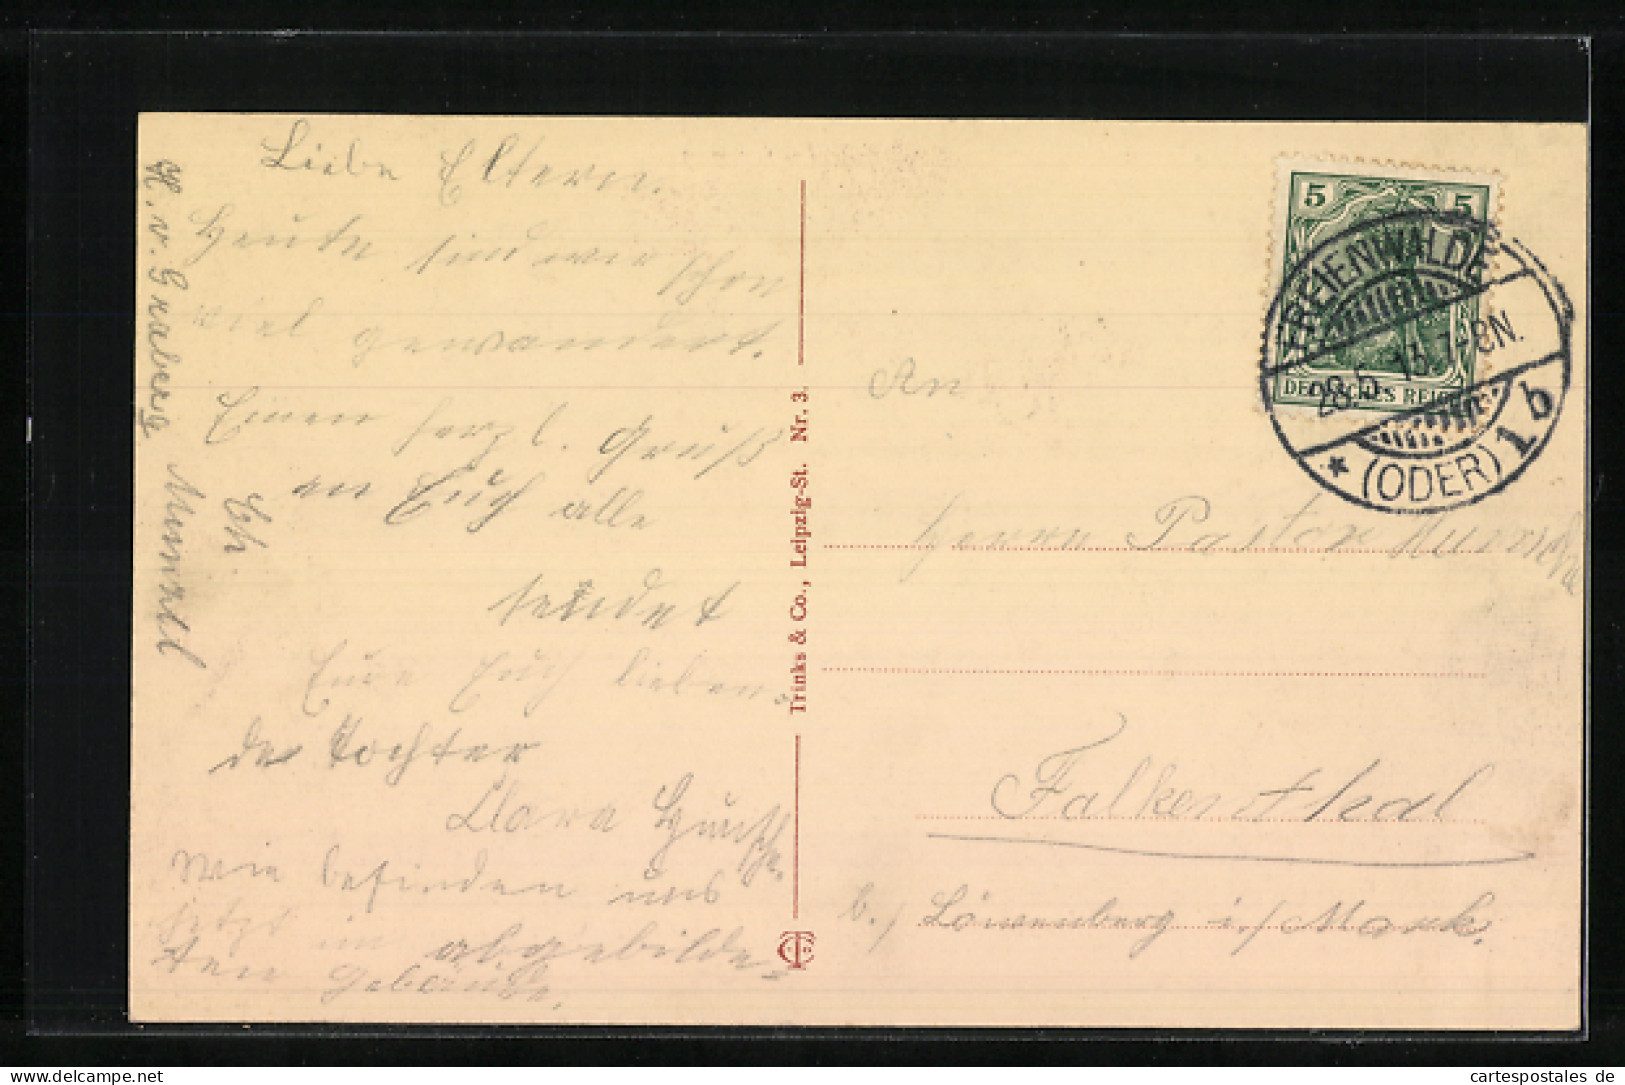 Liebe Eltern.
Heute sind wir schon
viel gewandert.
Einen herzl. Gruß
an Euch alle
sendet
Eure Euch lieben
de Tochter
Clara
Wir befinden uns
jetzt im abgebilde-
ten Gebäude.
H. v. Graberg
Trinks & Co., Leipzig-St. Nr. 3.
5 5
DEUTSCHES REICH
FREIENWALDE
28.5.13.7-8N.
* (ODER) 1 b
An
Herrn Pastor
Falkenthal
b./ Löwenberg i./ Mark.
delcampe.net
cartespostales de